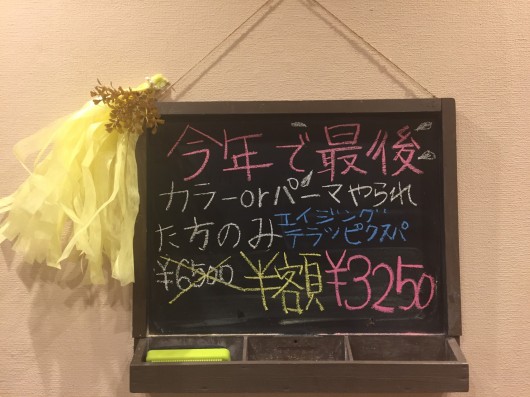 今年で最後
カラーorパーマやられ
た方のみ エイジング
テラッピクスパ
¥6500 半額 ¥3250